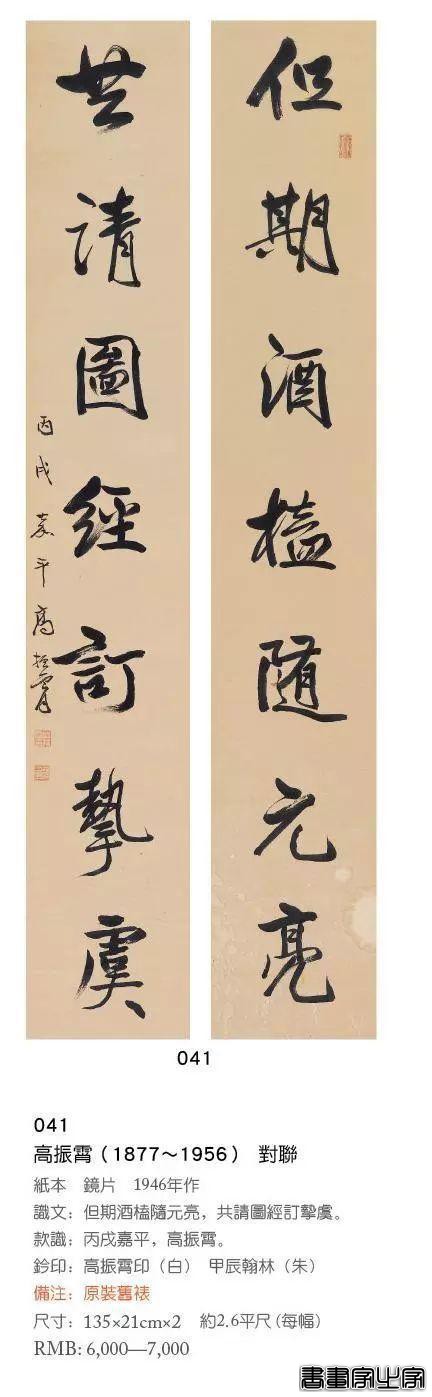 但期酒榼隨元亮
共請圖經訂摯虞
丙戌嘉平高振霄
041
041
高振霄（1877～1956） 對聯
紙本 鏡片 1946年作
識文：但期酒榼隨元亮，共請圖經訂摯虞。
款識：丙戌嘉平，高振霄。
鈐印：高振霄印（白） 甲辰翰林（朱）
備注：原裝舊裱
尺寸：135×21cm×2 約2.6平尺(每幅)
RMB: 6,000—7,000
書畫家止字